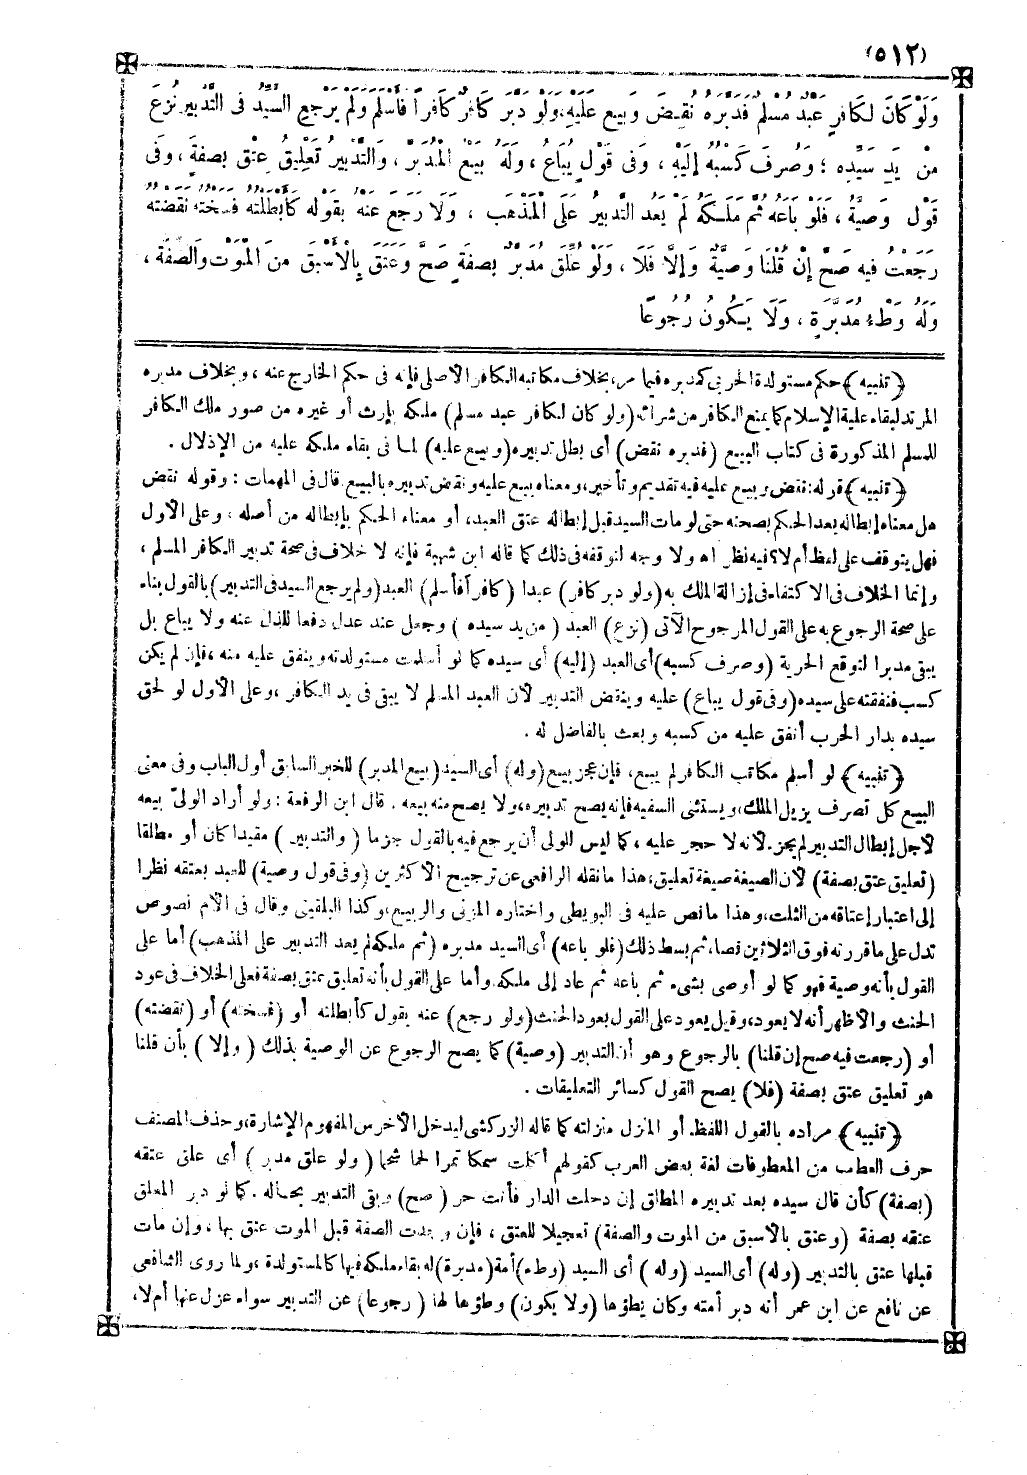 (٥١٢)
وَلَوْ كَانَ لِكَافِرٍ عَبْدٌ مُسْلِمٌ فَدَبَّرَهُ نُقِضَ وَبِيعَ عَلَيْهِ، وَلَوْ دَبَّرَ كَافِرٌ كَافِراً فَأَسْلَمَ وَلَمْ يَرْجِعِ السَّيِّدُ فِى التَّدْبِيرِ نُزِعَ
مِنْ يَدِ سَيِّدِهِ ؛ وَصُرِفَ كَسْبُهُ إِلَيْهِ ، وَفِى قَوْلٍ يُبَاعُ ، وَلَهُ بَيْعُ الْمُدَبَّرِ ، وَالتَّدْبِيرُ تَعْلِيقُ عِتْقٍ بِصِفَةٍ ، وَفِى
قَوْلٍ وَصِيَّةٌ ، فَلَوْ بَاعَهُ ثُمَّ مَلَكَهُ لَمْ يَعُدِ التَّدْبِيرُ عَلَى الْمَذْهَبِ ، وَلَا رَجَعَ عَنْهُ بِقَوْلِهِ كَأَبْطَلْتُهُ فَسَخْتُهُ نَقَضْتُهُ
رَجَعْتُ فِيهِ صَحَّ إِنْ قُلْنَا وَصِيَّةٌ وَإِلَّا فَلَا ، وَلَوْ عُلِّقَ مُدَبَّرٌ بِصِفَةٍ صَحَّ وَعَتَقَ بِالْأَسْبَقِ مِنَ الْمَوْتِ وَالصِّفَةِ ،
وَلَهُ وَطْءُ مُدَبَّرَةٍ ، وَلَا يَكُونُ رُجُوعًا
﴿ تنبيه ﴾ حكم مستولدة الحربى كمدبره فيما مر، بخلاف مكاتبه الكافر الأصلى فإنه فى حكم الخارج عنه ، وبخلاف مدبره
المرتد لبقاء علقة الإسلام كما يمنع الكافر من شرائه (ولو كان لكافر عبد مسلم) ملكه بإرث أو غيره من صور ملك الكافر
للمسلم المذكورة فى كتاب البيع (فدبره نقض) أى بطل تدبيره (وبيع عليه) لما فى بقاء ملكه عليه من الإذلال .
﴿ تنبيه ﴾ قوله: نقض وبيع عليه فيه تقديم وتأخير، ومعناه بيع عليه ونقض تدبيره بالبيع. قال فى المهمات : وقوله نقض
هل معناه إبطاله بعد الحكم بصحته حتى لو مات السيد قبل إبطاله عتق العبد، أو معناه الحكم بإبطاله من أصله ، وعلى الأول
فهل يتوقف على لفظ أم لا؟ فيه نظر اه ولا وجه لتوقفه فى ذلك كما قاله ابن شهبة فإنه لا خلاف فى صحة تدبير الكافر المسلم ،
وإنما الخلاف فى الاكتفاء فى إزالة الملك به (ولو دبر كافر) عبدا (كافراً فأسلم) العبد (ولم يرجع السيد فى التدبير) بالقول بناء
على صحة الرجوع به على القول المرجوح الآتى (نزع) العبد ( من يد سيده ) وجعل عند عدل دفعا للذل عنه ولا يباع بل
يبقى مدبرا لتوقع الحرية (وصرف كسبه) أى العبد (إليه) أى سيده كما لو أسلمت مستولدته وينفق عليه منه ، فإن لم يكن
كسب فنفقته على سيده (وفى قول يباع) عليه وينقض التدبير لأن العبد المسلم لا يبقى فى يد الكافر ، وعلى الأول لو لحق
سيده بدار الحرب أنفق عليه من كسبه وبعث بالفاضل له .
﴿ تنبيه ﴾ لو أسلم مكاتب الكافر لم يبع، فإن عجز بيع (وله) أى السيد (بيع المدبر) للخبر السابق أول الباب وفى معنى
البيع كل تصرف يزيل الملك، ويستثنى السفيه فإنه يصح تدبيره، ولا يصح منه بيعه . قال ابن الرفعة : ولو أراد الولىّ بيعه
لأجل إبطال التدبير لم يجز. لأنه لا حجر عليه ، كما ليس للولى أن يرجع فيه بالقول جزما ( والتدبير ) مقيدا كان أو مطلقا
(تعليق عتق بصفة) لأن الصيغة صيغة تعليق، هذا ما نقله الرافعى عن ترجيح الأكثرين (وفى قول وصية) للعبد بعتقه نظرا
إلى اعتبار إعتاقه من الثلث، وهذا ما نص عليه فى البويطى واختاره المزنى والربيع، وكذا البلقينى وقال فى الأم نصوص
تدل على ما قررته فوق الثلاثين نصا، ثم بسط ذلك (فلو باعه) أى السيد مدبره (ثم ملكه لم يعد التدبير على المذهب) أما على
القول بأنه وصية فهو كما لو أوصى بشىء ثم باعه ثم عاد إلى ملكه. وأما على القول بأنه تعليق عتق بصفة فعلى الخلاف فى عود
الحنث والأظهر أنه لا يعود، وقيل يعود على القول بعود الحنث (ولو رجع) عنه بقول كأبطلته أو (فسخته) أو (نقضته)
أو (رجعت فيه صح إن قلنا) بالرجوع وهو أن التدبير (وصية) كما يصح الرجوع عن الوصية بذلك ( وإلا ) بأن قلنا
هو تعليق عتق بصفة (فلا) يصح القول كسائر التعليقات .
﴿ تنبيه ﴾ مراده بالقول اللفظ. أو المنزل منزلته كما قاله الزركشى ليدخل الأخرس المفهوم الإشارة، وحذف المصنف
حرف العطف من المعطوفات لغة بعض العرب كقولهم أكلت سمكا تمرا لحما شحما ( ولو علق مدبر ) أى علق عتقه
(بصفة) كأن قال سيده بعد تدبيره المطلق إن دخلت الدار فأنت حر ( صح) وبقى التدبير بحاله . كما لو دبر المعلق
عتقه بصفة (وعتق بالأسبق من الموت والصفة) تعجيلا للعتق ، فإن وجدت الصفة قبل الموت عتق بها ، وإن مات
قبلها عتق بالتدبير (وله) أى السيد (وله ) أى السيد (وطء) أمة (مدبرة) له بقاء ملكه فيها كالمستولدة ، ولما روى الشافعى
عن نافع عن ابن عمر أنه دبر أمته وكان يطؤها (ولا يكون) وطؤها لها ( رجوعا) عن التدبير سواء عزل عنها أم لا،